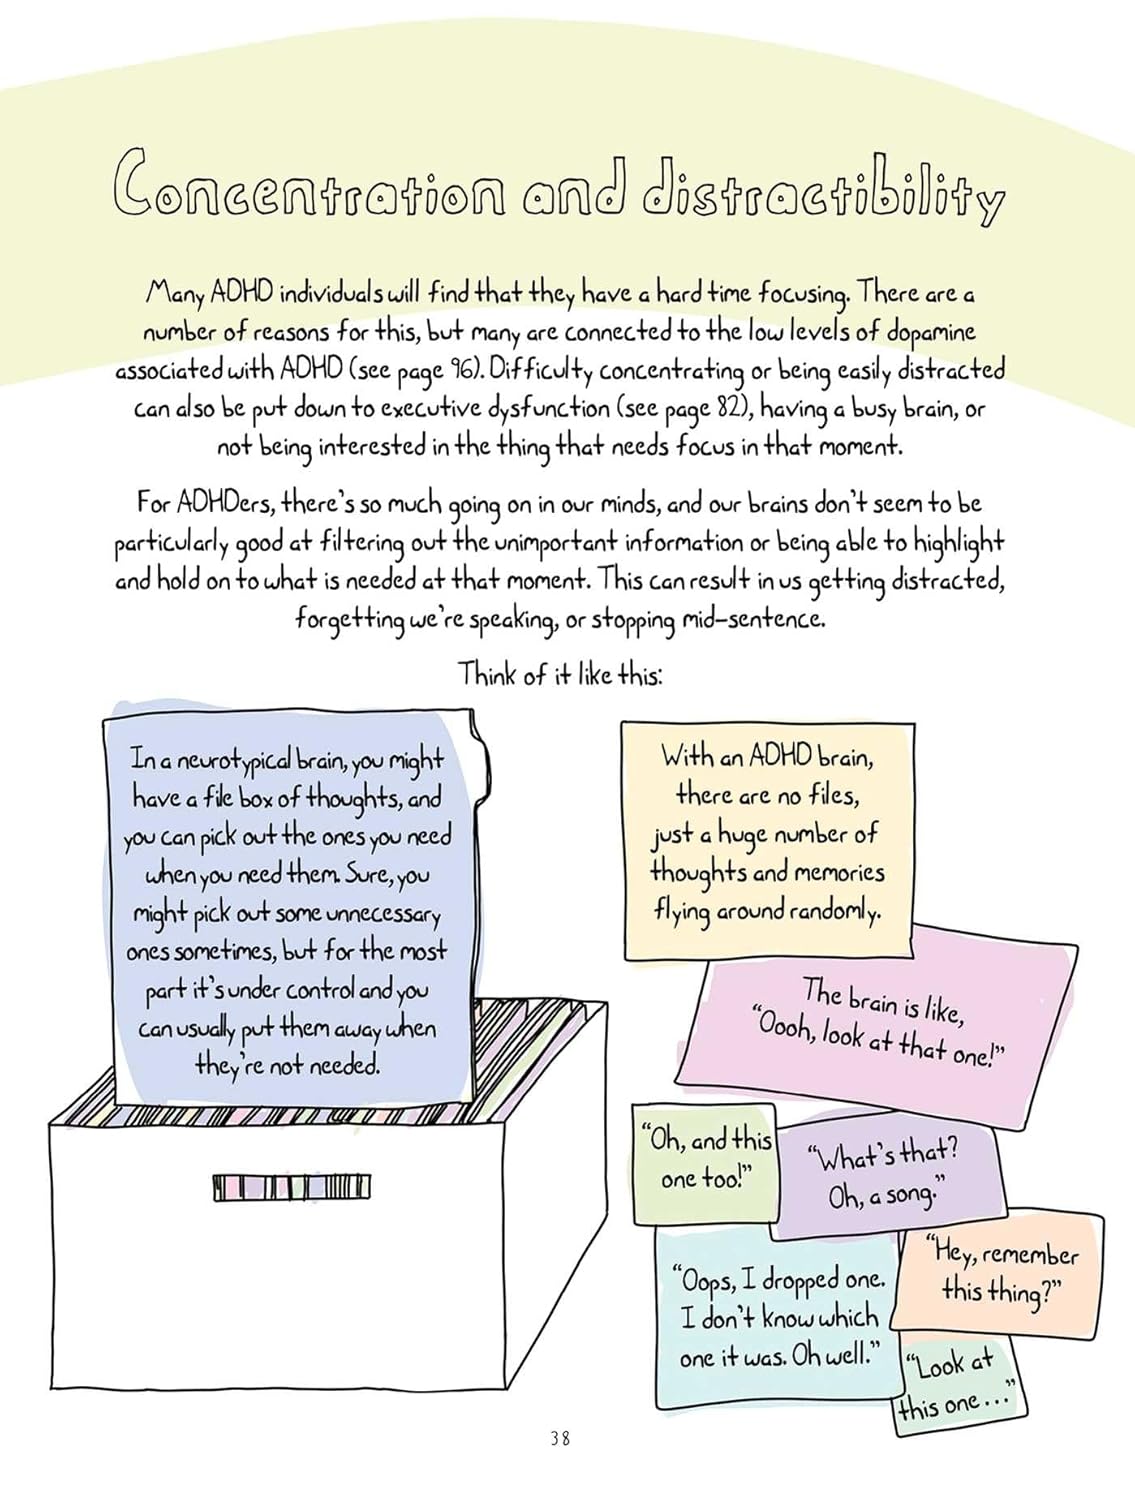 Concentration and distractibility
Many ADHD individuals will find that they have a hard time focusing. There are a
number of reasons for this, but many are connected to the low levels of dopamine
associated with ADHD (see page 96). Difficulty concentrating or being easily distracted
can also be put down to executive dysfunction (see page 82), having a busy brain, or
not being interested in the thing that needs focus in that moment.
For ADHDers, there's so much going on in our minds, and our brains don't seem to be
particularly good at filtering out the unimportant information or being able to highlight
and hold on to what is needed at that moment. This can result in us getting distracted,
forgetting we're speaking, or stopping mid-sentence.
Think of it like this:
In a neurotypical brain, you might
have a file box of thoughts, and
you can pick out the ones you need
when you need them. Sure, you
might pick out some unnecessary
ones sometimes, but for the most
part it's under control and you
can usually put them away when
they're not needed.
With an ADHD brain,
there are no files,
just a huge number of
thoughts and memories
flying around randomly.
The brain is like,
"Oooh, look at that one!"
"Oh, and this
one too!"
"What's that?
Oh, a song."
"Hey, remember
this thing?"
"Oops, I dropped one.
I don't know which
one it was. Oh well."
"Look at
this one..."
38